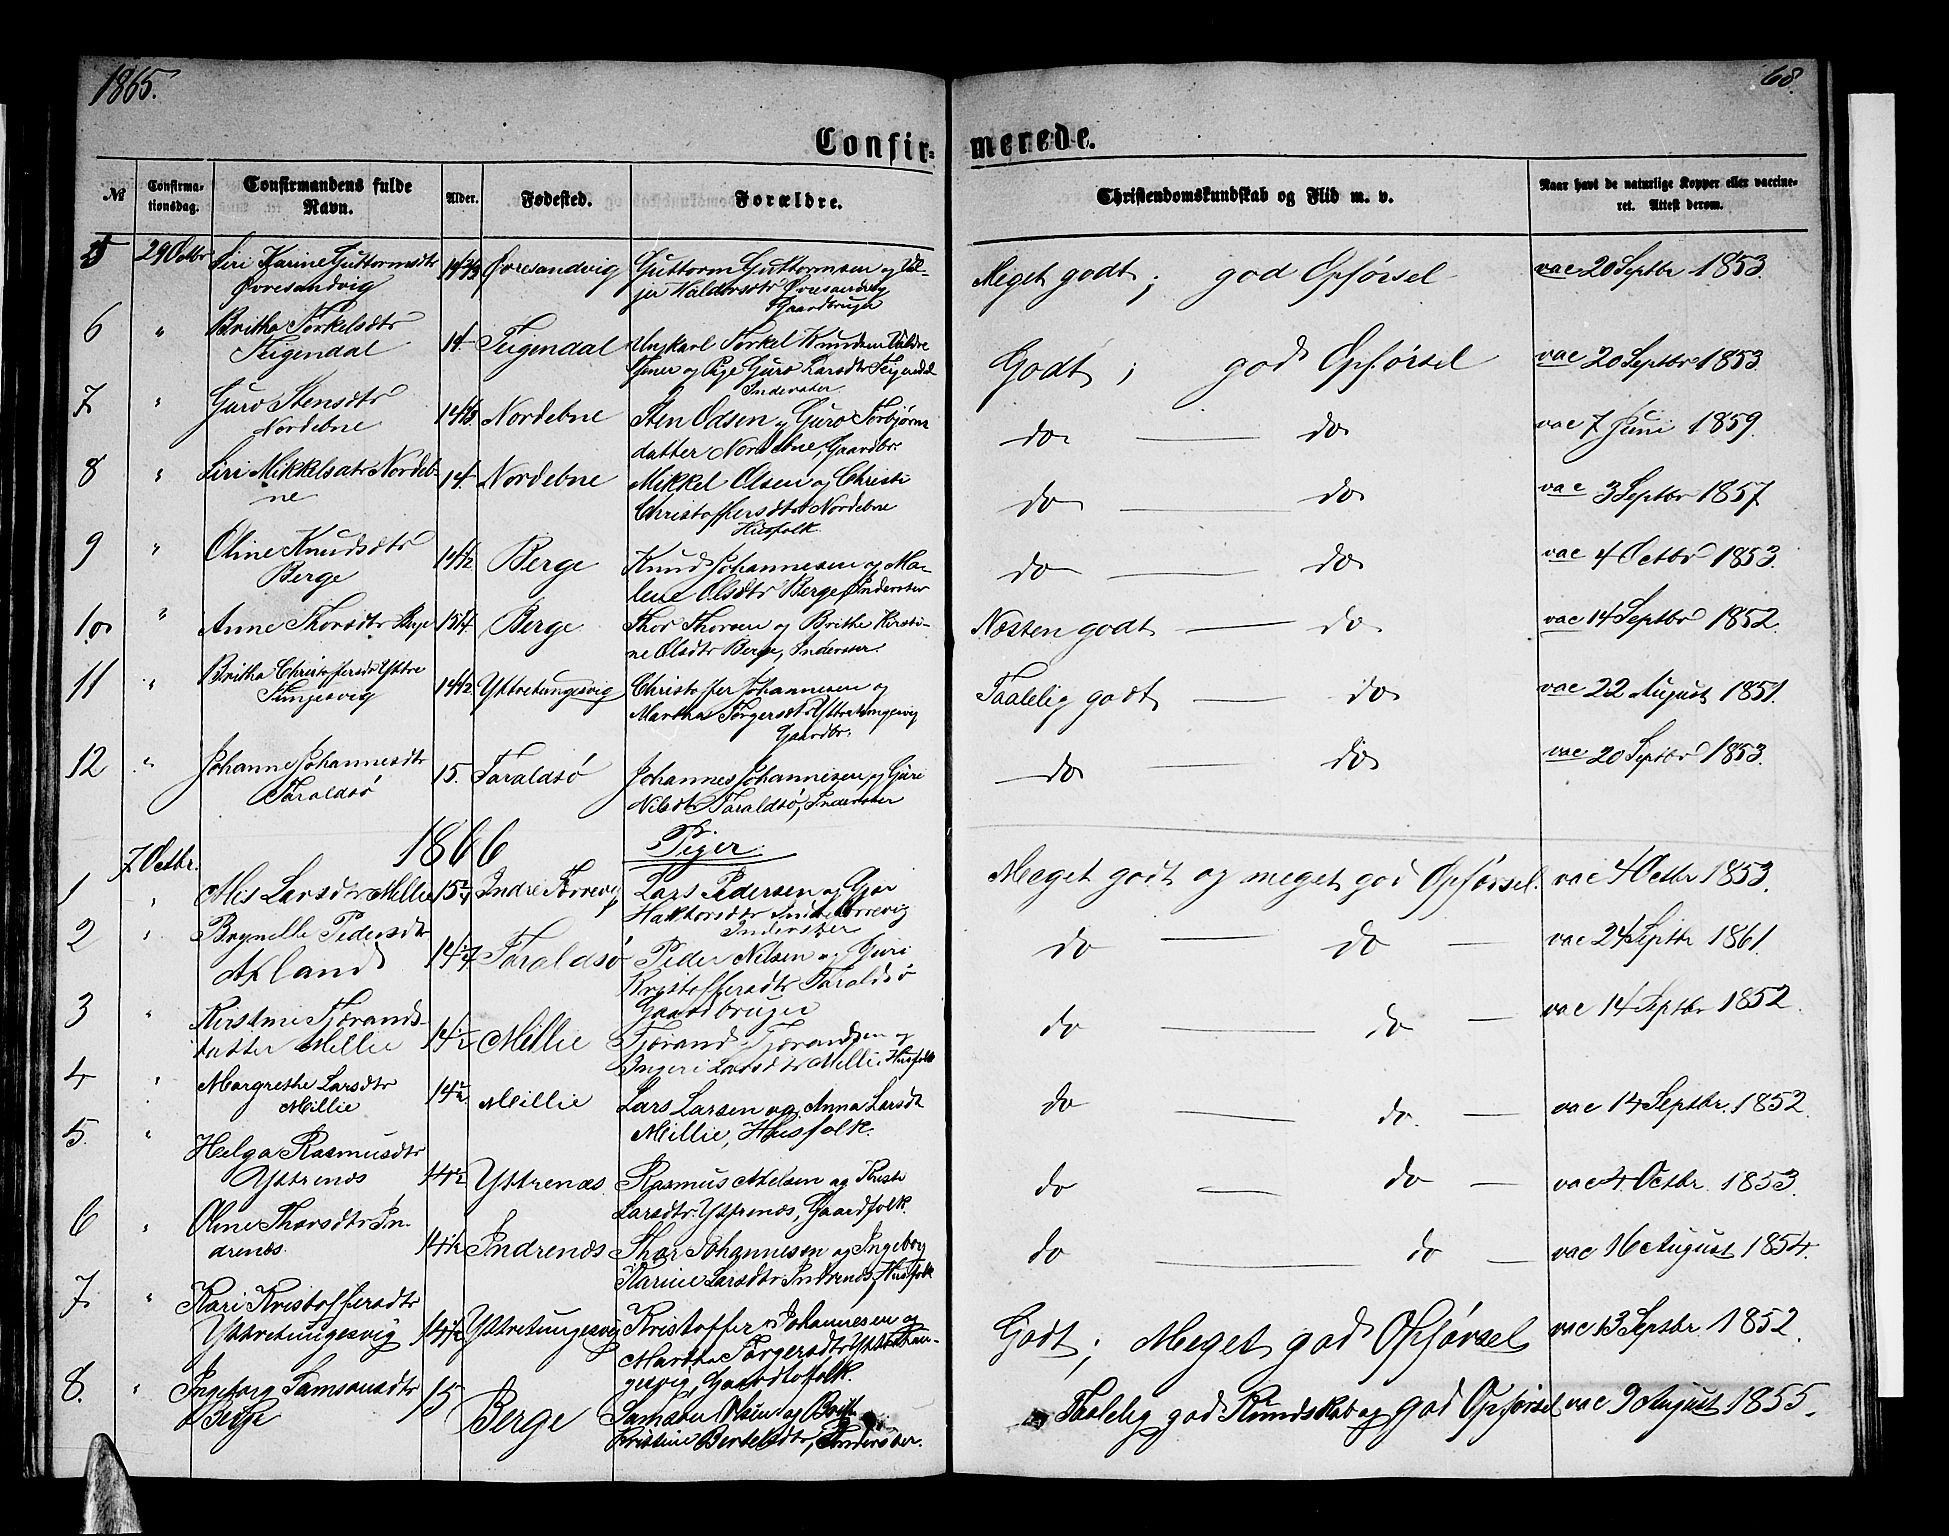 1865.
68.
Confirmerede.
№ Confirmationsdag. Confirmandens fulde Navn. Alder. Fødested. Forældre. Christendomskundskab og Flid m. v. Naar havt de naturlige Kopper eller vaccineret. Attest derom.
5 29 Octbr Siri Karine Guttormsdtr Øvresandvig Øvresandvig Guttorm Guttormsen og
Øvresandvig Gaardbruger Meget godt; god Opførsel vac 20 Septbr 1853.
6 " Britha Torkelsdtr Teigendal 14 Teigendal Ungkarl Torkel Knudsen
og Pige Guro Larsdtr Inderster Godt; god Opførsel vac 20 Septbr 1853.
7 " Guro Stensdtr Nordebne Nordebne Sten Odsen og Guro Torbjørns
datter Nordebne, Gaardbr. do — do vac 7 Juni 1859.
8 " Siri Mikkelsdtr Nordeb-
ne 14. Nordebne Mikkel Olsen og Christi
Christoffersdtr Nordebne
Husfolk do — do vac 3 Septbr 1857
9 " Oline Knudsdtr
Berge 14 1/2 Berge Knud Johannesen og Ma-
lene Olsdtr Berge Inderster do — do vac 4 Octbr 1853.
10 " Anne Thorsdtr Berge 15 1/4 Berge Thor Thorsen og Brithe Kirsti-
ne Olsdtr Berge, Inderster. Næsten godt — do vac 14 Septbr 1852.
11 " Britha Christoffersdtr Yttre
Tungesvig 14 1/2 Yttretungesvig Christoffer Johannesen og
Martha Torgersdtr Yttretungesvig
Gaardbr. Taalelig godt — do vac 22 August 1851.
12 " Johanne Johannesdtr
Taraldsö 15. Taraldsö Johannes Johannesen og Guri
Nilsdtr Taraldsö, Inderster do — do vac 20 Septbr 1853.
1866 Piger.
7 Octbr.
1 " Larsdtr Millie Indre Lars Pedersen og
Inderster Meget godt og meget god Opførsel. vac 4 Octbr 1853.
2 " Brynelle Pedersdtr
Axland Taraldsö Peder Nilsen og Guri
Kristoffersdtr Taraldsö
Gaardbruger do — do — vac 24 Septbr 1861.
3 " Kirstine Tjærands-
datter Millie 14 1/2 Millie Tjærand Tjærandsen og
Ingeri Larsdtr Millie, Husfolk do — do — vac 14 Septbr 1852.
4 " Margrethe Larsdtr
Millie 14 1/2 Millie Lars Larsen og Anna Larsdt
Millie, Husfolk. do — do. — vac 14 Septbr. 1852.
5. " Helga Rasmusdtr
Yttrenæs 14 1/2 Yttrenæs Rasmus Axelsen og Kristi
Larsdtr. Yttrenæs, Gaardfolk. do — do — vac 4 Octbr. 1853.
6 " Oline Thorsdtr In-
drenæs. 14 1/2 Indrenæs Thor Johannesen og Ingeborg
Karine Larsdtr Indrenæs, Husfolk do — do — vac 16 August 1854.
7 " Kari Kristoffersdtr
Yttretungesvig 14 1/2 Yttretungesvig Kristoffer Johannesen og
Martha Torgersdtr Yttretun-
gesvig, Gaardfolk. Godt; Meget god Opførsel vac 13 Septbr. 1852.
8. " Ingeborg Samsonsdtr
Berge 15 Berge Samson Olsen og
Kristine Bertelsdtr, Inderster. Taalelig god Kundskab og god Opførsel vac 9 August 1855.